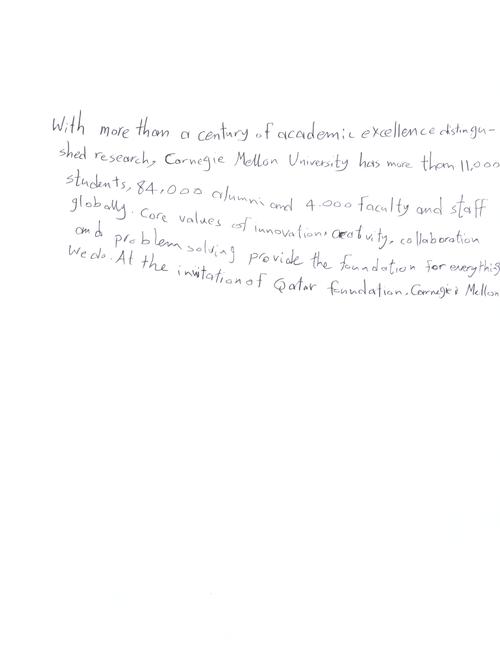 With more than a century of academic excellence distingu-
shed research, Carnegie Mellon University has more than 11,000
students, 84,000 alumni and 4.000 faculty and staff
globally. Core values of innovation, creativity, collaboration
and problem solving provide the foundation for everything
we do. At the invitation of Qatar foundation, Carnegie Mellon